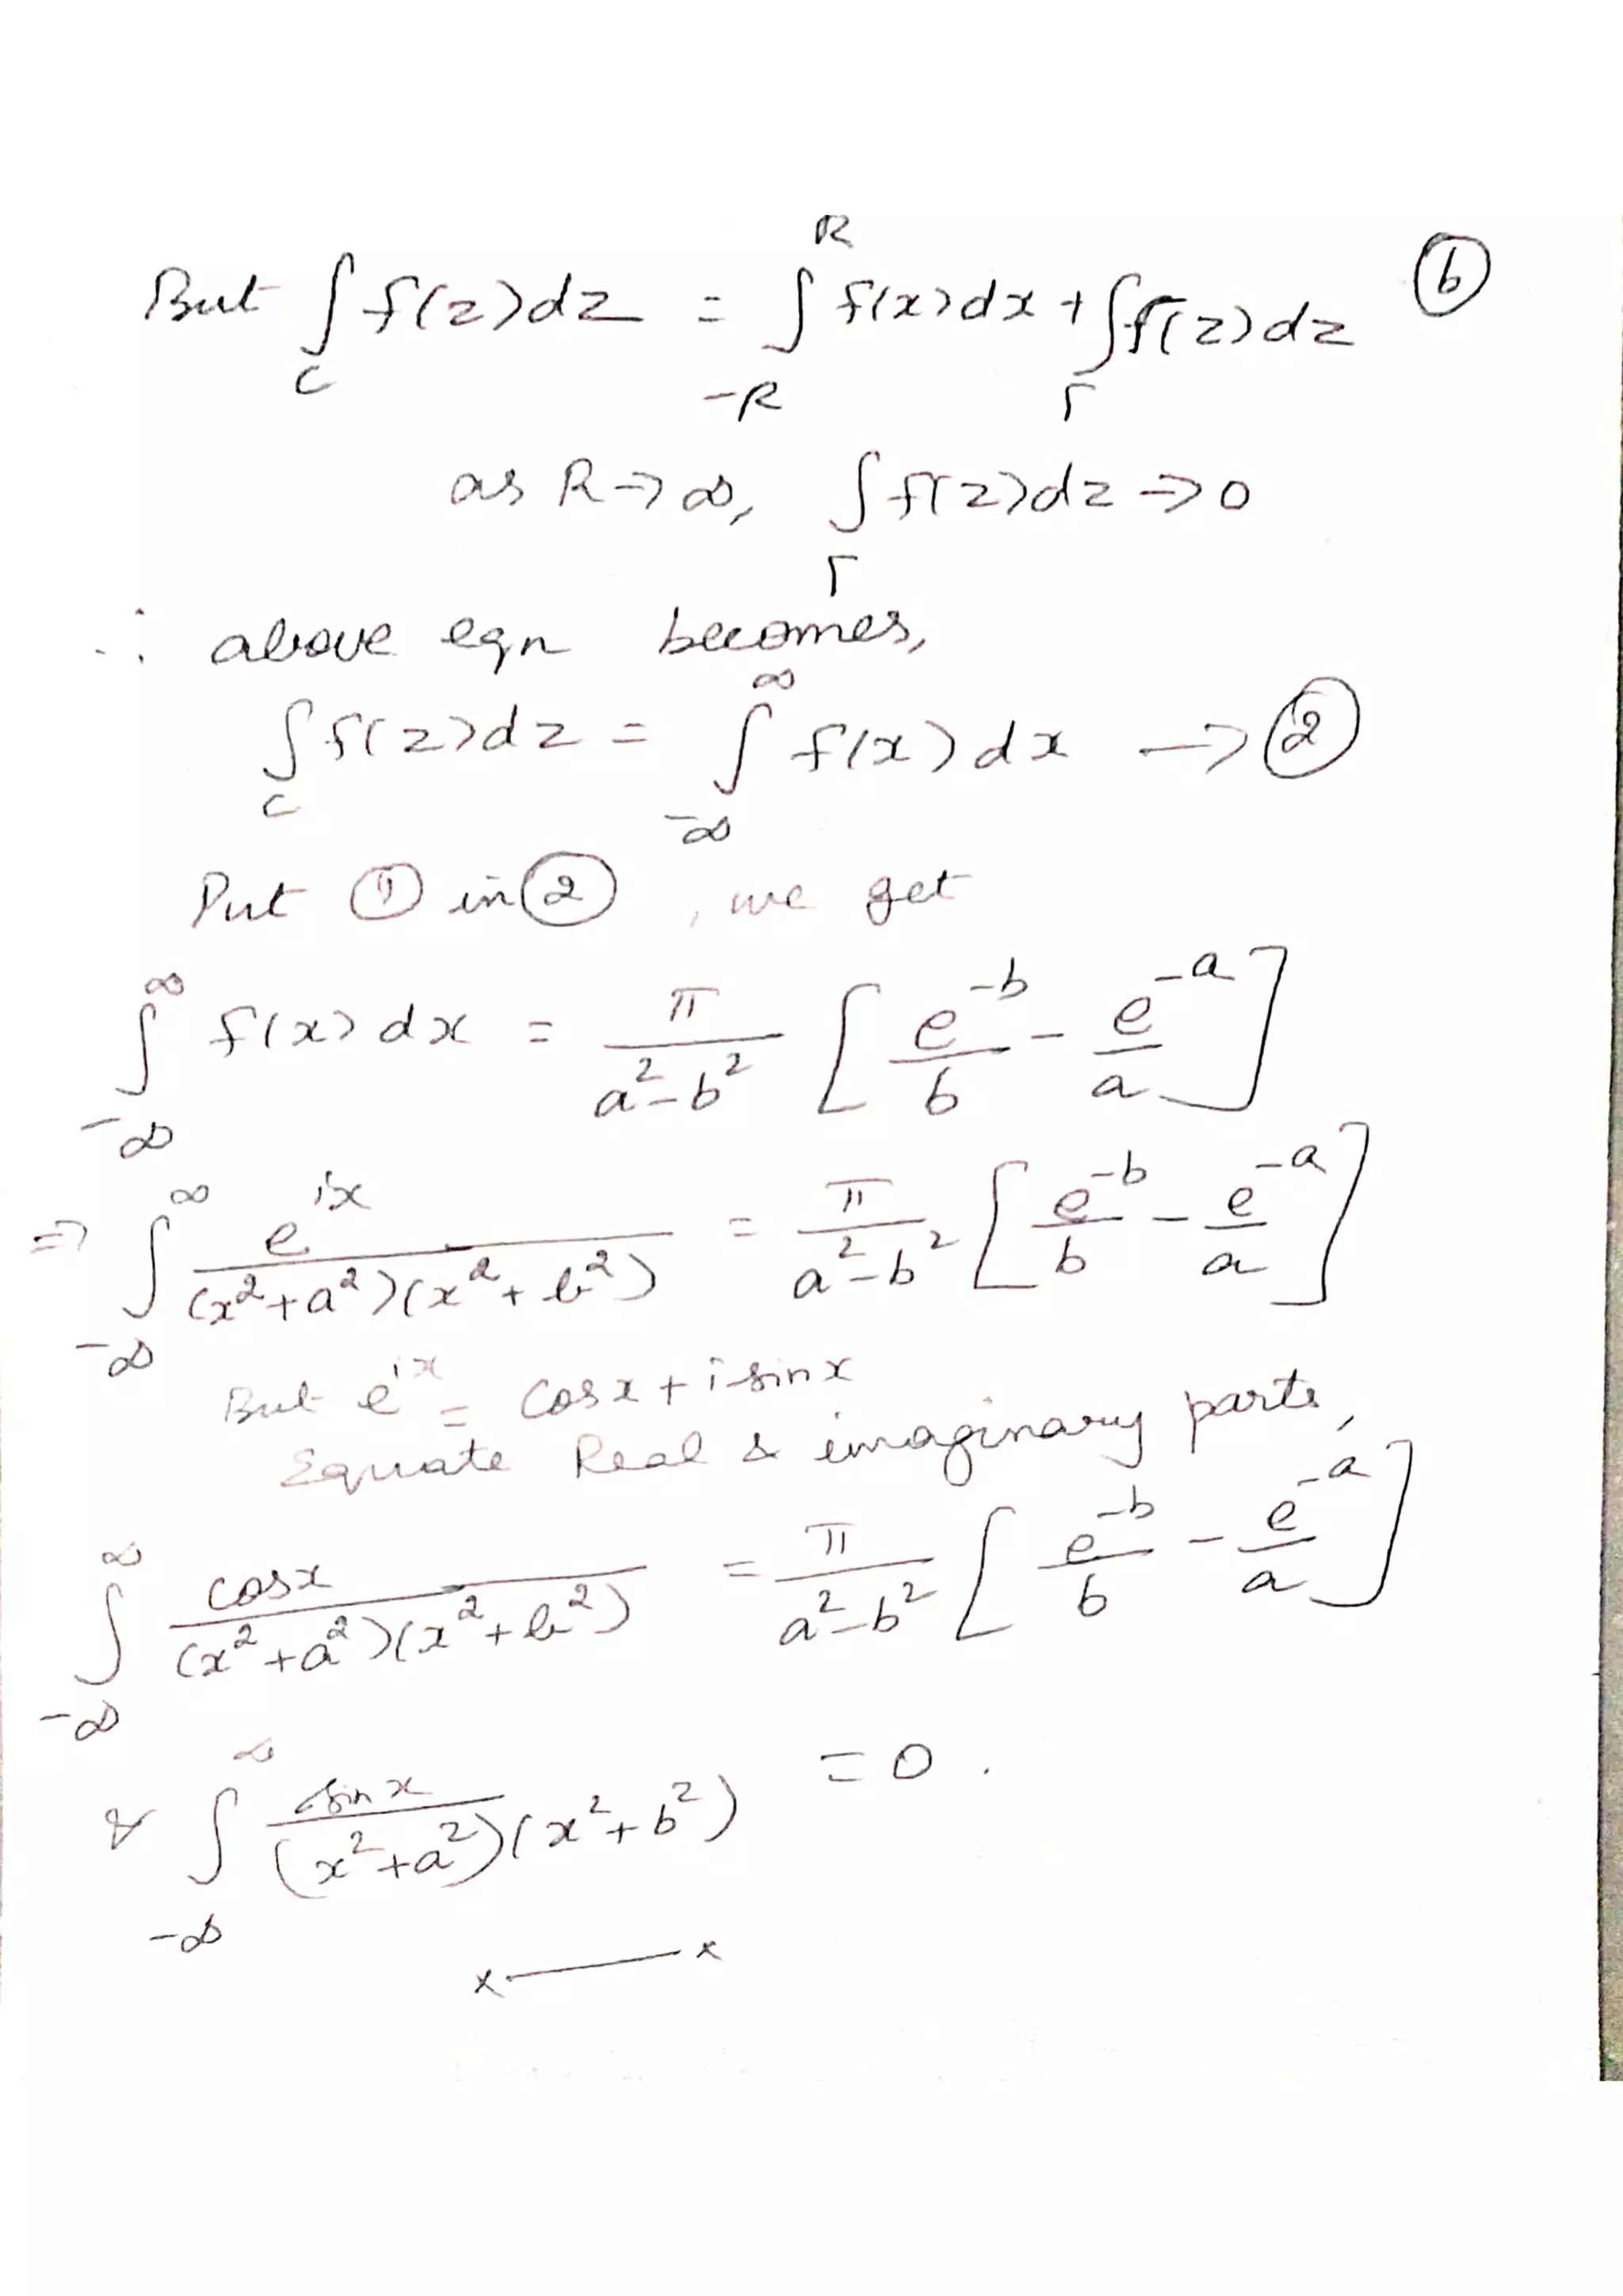 But ∫_C f(z)dz = ∫_{-R}^{R} f(x)dx + ∫_Γ f(z)dz ⑥
as R→∞, ∫_Γ f(z)dz → 0
∴ above eqn becomes,
∫_C f(z)dz = ∫_{-∞}^{∞} f(x)dx → ②
Put ① in ②, we get
∫_{-∞}^{∞} f(x)dx = π/(a²-b²) [e^{-b}/b - e^{-a}/a]
⇒ ∫_{-∞}^{∞} e^{ix}/((x²+a²)(x²+b²)) = π/(a²-b²) [e^{-b}/b - e^{-a}/a]
But e^{ix} = cosx + i sinx
Equate Real & imaginary parts,
∫_{-∞}^{∞} cosx/((x²+a²)(x²+b²)) = π/(a²-b²) [e^{-b}/b - e^{-a}/a]
& ∫_{-∞}^{∞} sinx/((x²+a²)(x²+b²)) = 0.
x—x